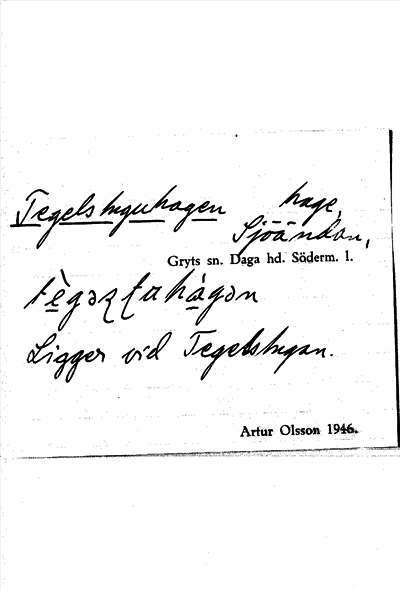 Tegelstuguhagen hage,
Sjöändan,
Gryts sn. Daga hd. Söderm. l.
Ligger vid Tegelstugan.
Artur Olsson 1946.